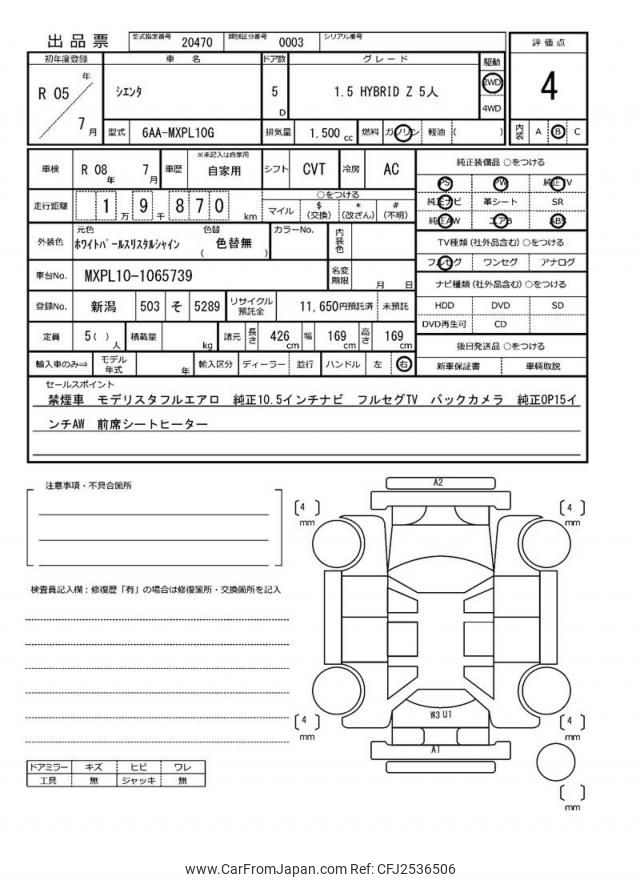 出品票 型式指定番号 20470 類別区分番号 0003 シリアル番号
初年度登録 車名 ドア数 グレード 駆動 評価点
R 05 年 7 月 シエンタ 5 D 1.5 HYBRID Z 5人 2WD 4WD 4
型式 6AA-MXPL10G 排気量 1,500 cc 燃料 ガソリン 軽油 ( ) 内装 A B C
車検 R 08 年 7 月 車歴 ※未記入は自家用 自家用 シフト CVT 冷房 AC
純正装備品 ○をつける
PS PW 純正TV
純正ナビ 革シート SR
純正AW エアB ABS
走行距離 1 万 9 千 870 km
○をつける
マイル $ (交換) * (改ざん) # (不明)
外装色 元色 ホワイトパールスリスタルシャイン 色替 ( 色替無 ) カラーNo. 内装色
TV種類 (社外品含む) ○をつける
フルセグ ワンセグ アナログ
車台No. MXPL10-1065739 名変期限 月 日
ナビ種類 (社外品含む) ○をつける
HDD DVD SD
DVD再生可 CD
登録No. 新潟 503 そ 5289 リサイクル預託金 11,650円預託済 未預託
定員 5 ( ) 人 積載量 kg 諸元 長さ 426 cm 幅 169 cm 高さ 169 cm
後日発送品 ○をつける
新車保証書 車輌取説
輸入車のみ⇒ モデル年式 年 輸入区分 ディーラー 並行 ハンドル 左 右
セールスポイント
禁煙車 モデリスタフルエアロ 純正10.5インチナビ フルセグTV バックカメラ 純正OP15イ
ンチAW 前席シートヒーター
注意事項・不具合箇所
検査員記入欄：修復歴「有」の場合は修復箇所・交換箇所を記入
A2
[ 4 ] mm
[ 4 ] mm
W3 U1
A1
[ 4 ] mm
[ 4 ] mm
[ ] mm
ドアミラー キズ ヒビ ワレ
工具 無 ジャッキ 無
www.CarFromJapan.com Ref: CFJ2536506